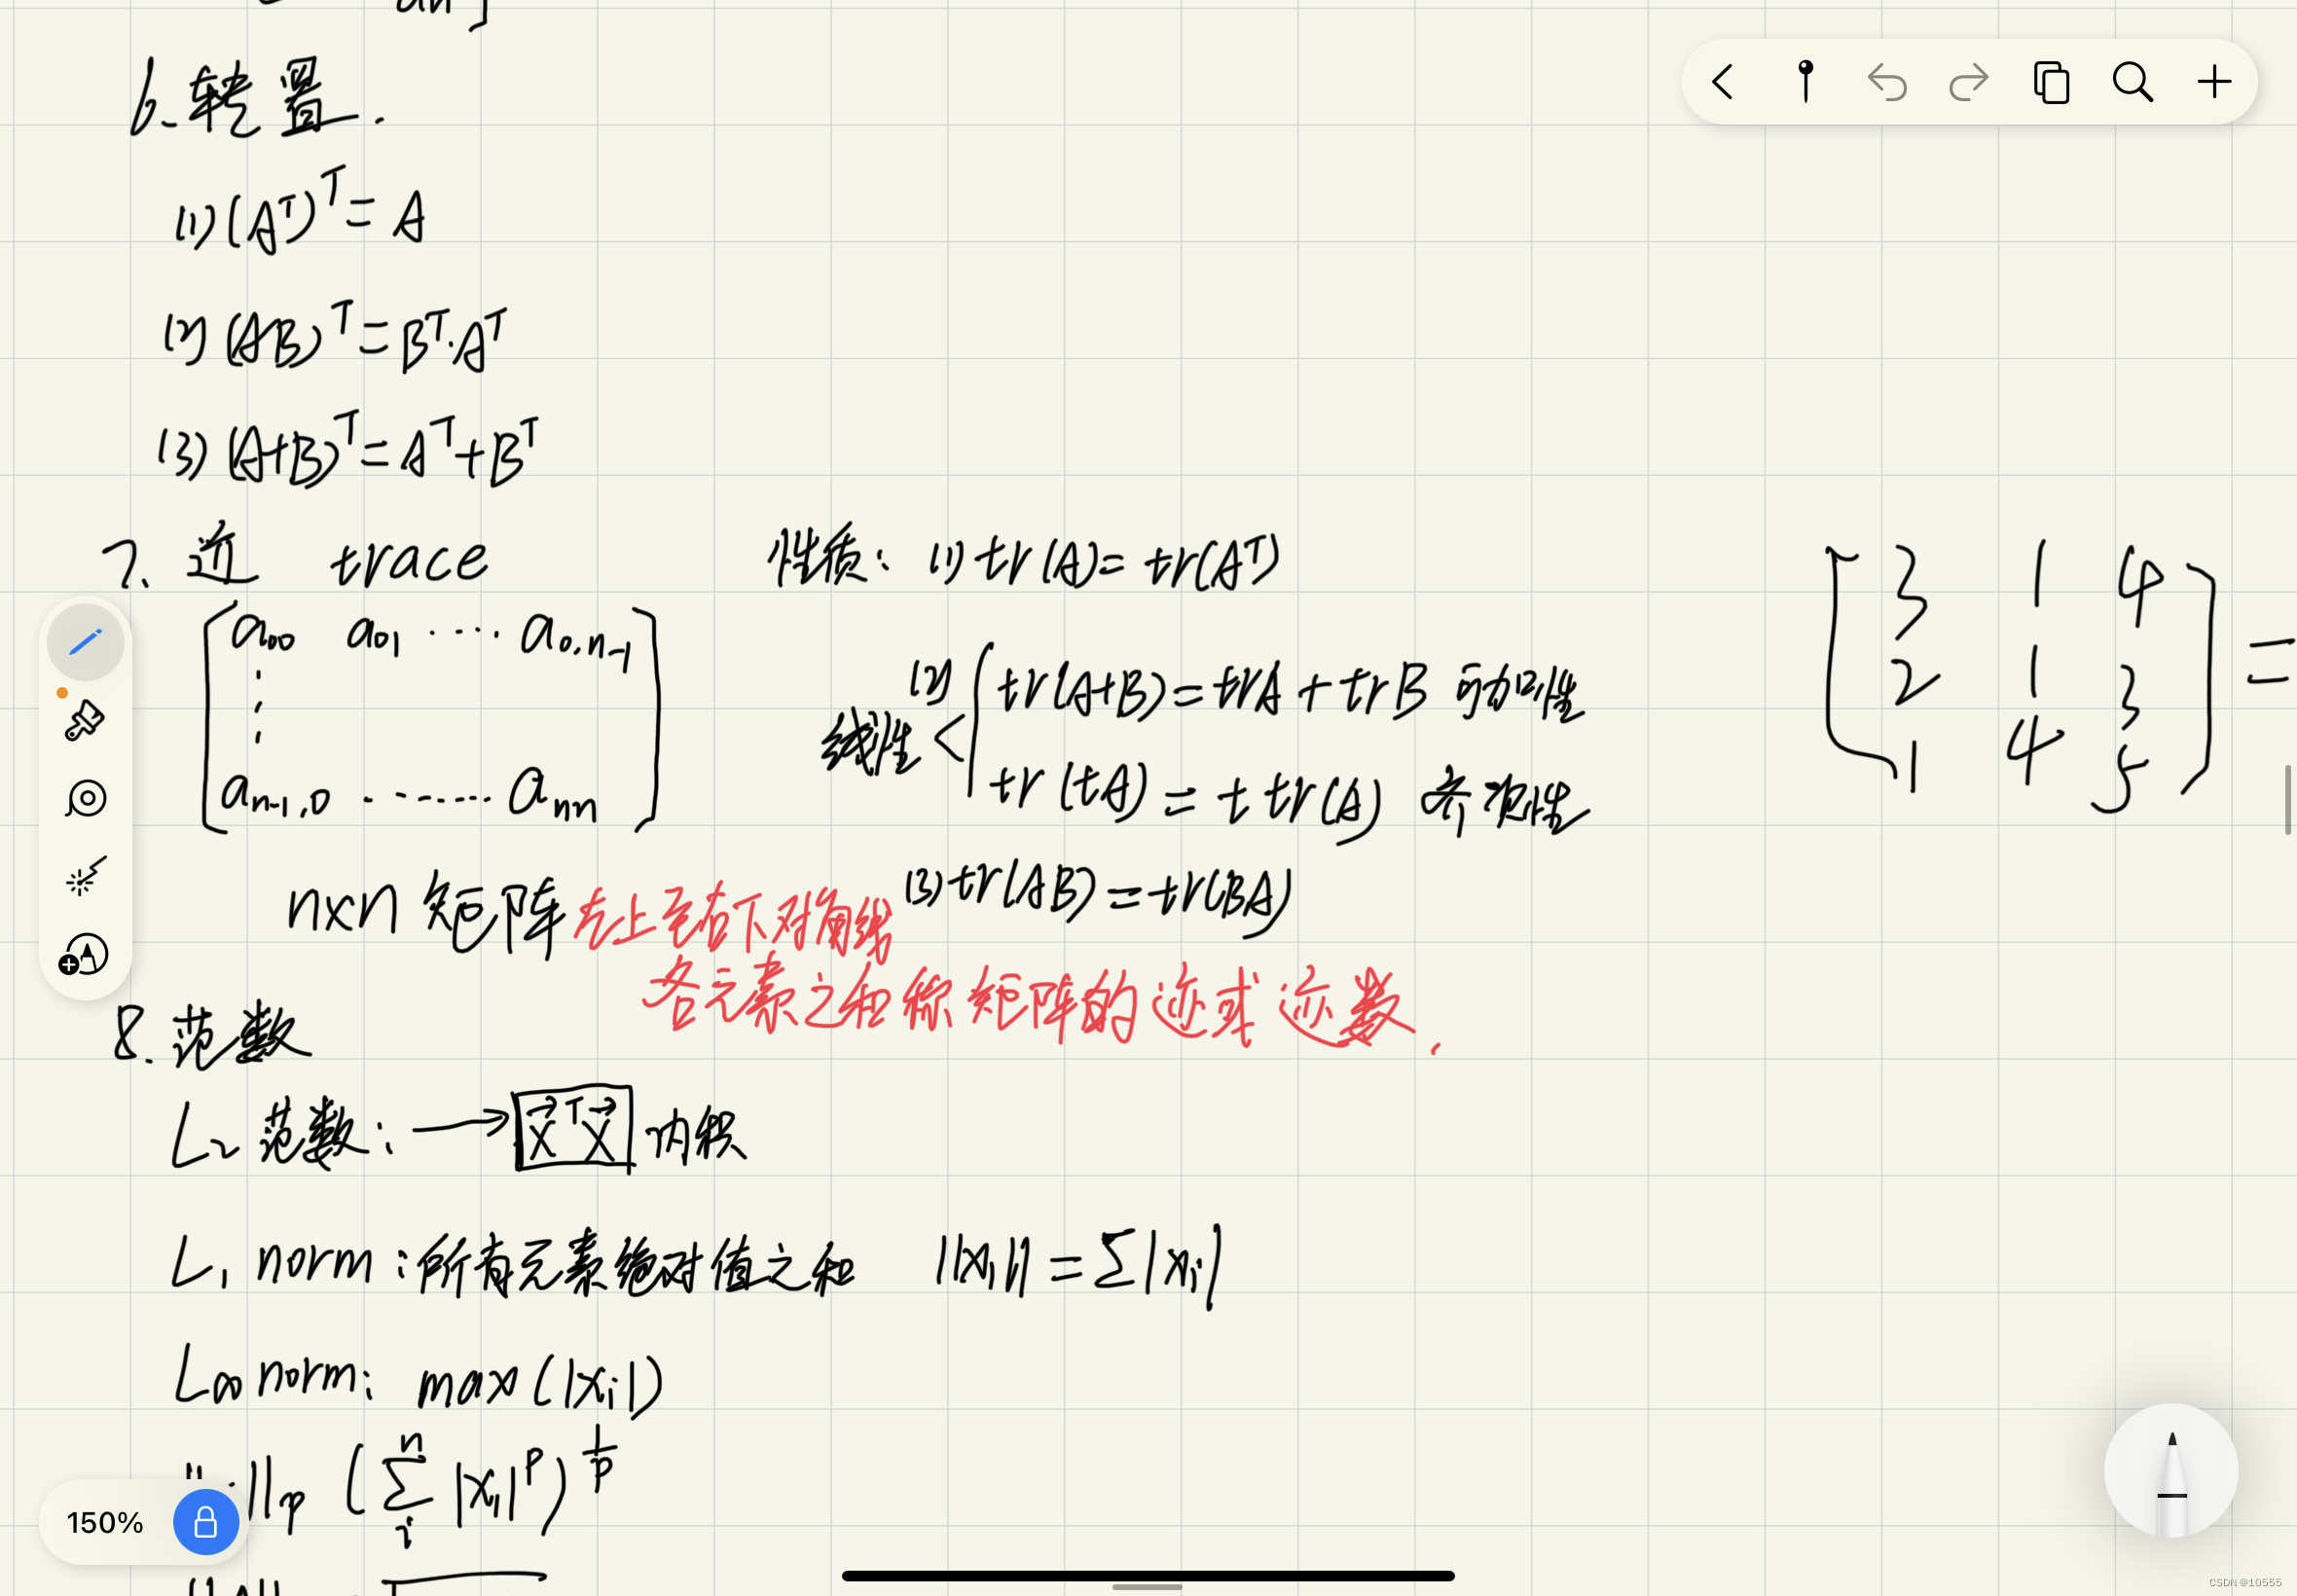 6. 转置.
(1) (Aᵀ)ᵀ = A
(2) (AB)ᵀ = Bᵀ·Aᵀ
(3) (A+B)ᵀ = Aᵀ+Bᵀ
7. 迹 trace
[a₀₀ a₀₁ ····· a₀.ₙ₋₁
⋮
aₙ₋₁,₀ ········ aₙₙ]
n×n 矩阵 左上至右下对角线
各元素之和称矩阵的迹或迹数.
性质: (1) tr(A) = tr(Aᵀ)
(2) tr(A+B) = trA + trB 可加性
线性 <
tr(tA) = t tr(A) 齐次性
(3) tr(AB) = tr(BA)
[3 1 4
2 1 3
1 4 5] =
8. 范数
L₂ 范数: → x⃗ᵀx⃗ 内积
L₁ norm: 所有元素绝对值之和 ||x|| = Σ|xᵢ|
L∞ norm: max(|xᵢ|)
||ₚ (Σⁿᵢ |xᵢ|ᵖ)^(1/p)
150%
CSDN @10555